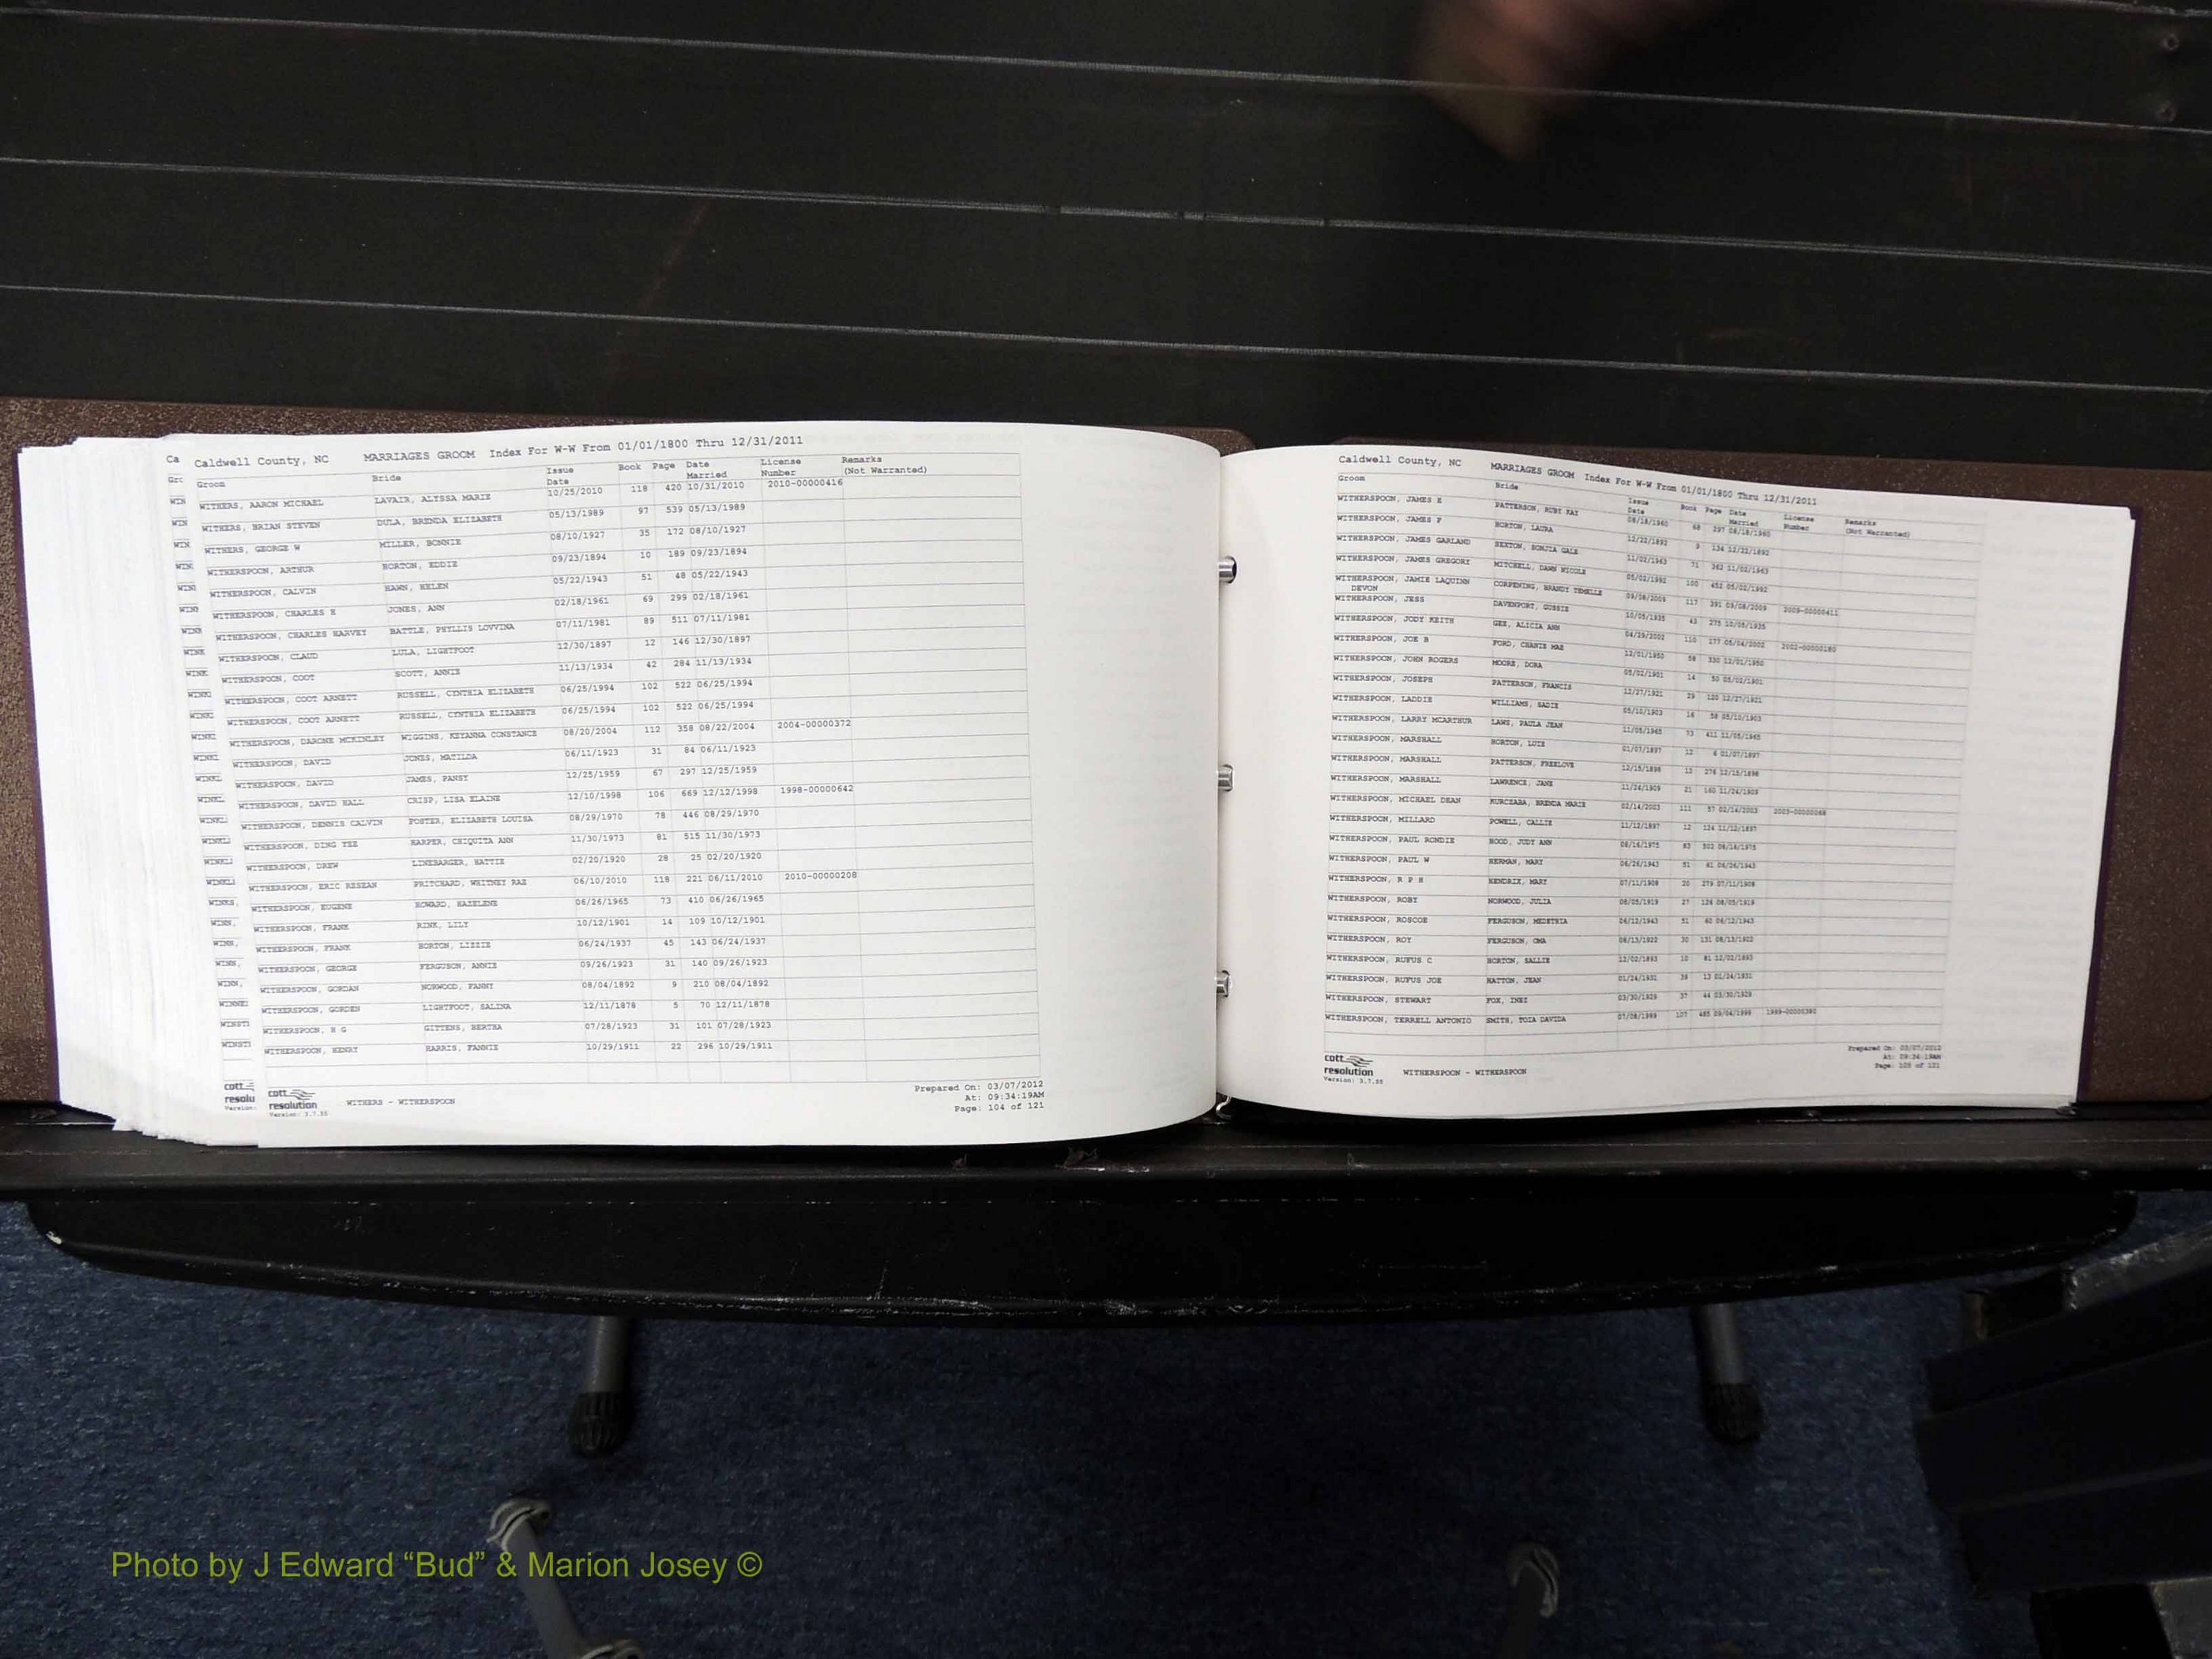 Caldwell County, NC MARRIAGES GROOM Index For W-W From 01/01/1800 Thru 12/31/2011
Groom Bride Issue Date Book Page Date Married License Number Remarks (Not Warranted)
WITHERS, AARON MICHAEL LAVAIR, ALYSSA MARIE 10/25/2010 118 420 10/31/2010 2010-00000416
WITHERS, BRIAN STEVEN DULA, BRENDA ELIZABETH 05/13/1989 97 539 05/13/1989
WITHERS, GEORGE W MILLER, BONNIE 08/10/1927 35 172 08/10/1927
WITHERSPOON, ARTHUR HORTON, EDDIE 09/23/1894 10 189 09/23/1894
WITHERSPOON, CALVIN HAWN, HELEN 05/22/1943 51 48 05/22/1943
WITHERSPOON, CHARLES H JONES, ANN 02/18/1961 69 299 02/18/1961
WITHERSPOON, CHARLES HARVEY BATTLE, PHYLLIS LOVVINA 07/11/1981 89 511 07/11/1981
WITHERSPOON, CLAUD LULA, LIGHTFOOT 12/30/1897 12 146 12/30/1897
WITHERSPOON, COOT SCOTT, ANNIE 11/13/1934 42 284 11/13/1934
WITHERSPOON, COOT ARNETT RUSSELL, CYNTHIA ELIZABETH 06/25/1994 102 522 06/25/1994
WITHERSPOON, COOT ARNETT RUSSELL, CYNTHIA ELIZABETH 06/25/1994 102 522 06/25/1994
WITHERSPOON, DARONE MCKINLEY WIGGINS, KEYANNA CONSTANCE 08/20/2004 112 358 08/22/2004 2004-00000372
WITHERSPOON, DAVID JONES, MATILDA 06/11/1923 31 84 06/11/1923
WITHERSPOON, DAVID JAMES, PANSY 12/25/1959 67 297 12/25/1959
WITHERSPOON, DAVID HALL CRISP, LISA ELAINE 12/10/1998 106 669 12/12/1998 1998-00000642
WITHERSPOON, DENNIS CALVIN FOSTER, ELIZABETH LOUISA 08/29/1970 78 446 08/29/1970
WITHERSPOON, DING YEE HARPER, CHIQUITA ANN 11/30/1973 81 515 11/30/1973
WITHERSPOON, DREW LINEBARGER, HATTIE 02/20/1920 28 25 02/20/1920
WITHERSPOON, ERIC RESEAN PRITCHARD, WHITNEY RAE 06/10/2010 118 221 06/11/2010 2010-00000208
WITHERSPOON, EUGENE HOWARD, HAZELENE 06/26/1965 73 410 06/26/1965
WITHERSPOON, FRANK RINK, LILY 10/12/1901 14 109 10/12/1901
WITHERSPOON, FRANK HORTON, LIZZIE 06/24/1937 45 143 06/24/1937
WITHERSPOON, GEORGE FERGUSON, ANNIE 09/26/1923 31 140 09/26/1923
WITHERSPOON, GORDAN NORWOOD, FANNY 08/04/1892 9 210 08/04/1892
WITHERSPOON, GORDEN LIGHTFOOT, SALINA 12/11/1878 5 70 12/11/1878
WITHERSPOON, H G GITTENS, BERTHA 07/28/1923 31 101 07/28/1923
WITHERSPOON, HENRY HARRIS, FANNIE 10/29/1911 22 296 10/29/1911
cott resolution Version: 3.7.55
WITHERS - WITHERSPOON
Prepared On: 03/07/2012
At: 09:34:19AM
Page: 104 of 121
Caldwell County, NC MARRIAGES GROOM Index For W-W From 01/01/1800 Thru 12/31/2011
Groom Bride Issue Date Book Page Date Married License Number Remarks (Not Warranted)
WITHERSPOON, JAMES E PATTERSON, RUBY FAY 08/18/1960 68 297 08/18/1960
WITHERSPOON, JAMES F HORTON, LAURA 12/22/1892 9 134 12/22/1892
WITHERSPOON, JAMES GARLAND SEXTON, SONJIA GALE 11/02/1963 71 362 11/02/1963
WITHERSPOON, JAMES GREGORY MITCHELL, DAWN NICOLE 05/02/1992 100 452 05/02/1992
WITHERSPOON, JAMIE LAQUINN DEVON CORPENING, BRANDY TEMELLE 09/08/2009 117 391 09/08/2009 2009-00000411
WITHERSPOON, JESS DAVENPORT, GUSSIE 10/05/1935 43 275 10/05/1935
WITHERSPOON, JODY KEITH GEE, ALICIA ANN 04/29/2002 110 177 05/04/2002 2002-00000180
WITHERSPOON, JOE B FORD, CHANIE MAE 12/01/1950 58 330 12/01/1950
WITHERSPOON, JOHN ROGERS MOORE, DORA 05/02/1901 14 50 05/02/1901
WITHERSPOON, JOSEPH PATTERSON, FRANCIS 12/27/1921 29 120 12/27/1921
WITHERSPOON, LADDIE WILLIAMS, SADIE 05/10/1903 16 58 05/10/1903
WITHERSPOON, LARRY MCARTHUR LAWS, PAULA JEAN 11/05/1965 73 411 11/05/1965
WITHERSPOON, MARSHALL HORTON, LUIE 01/07/1897 12 6 01/07/1897
WITHERSPOON, MARSHALL PATTERSON, FREELOVE 12/15/1898 12 276 12/15/1898
WITHERSPOON, MARSHALL LAWRENCE, JANE 11/24/1909 21 160 11/24/1909
WITHERSPOON, MICHAEL DEAN KURCZABA, BRENDA MARIE 02/14/2003 111 57 02/14/2003 2003-00000068
WITHERSPOON, MILLARD POWELL, CALLIE 11/12/1897 12 124 11/12/1897
WITHERSPOON, PAUL RONDIE HOOD, JUDY ANN 08/16/1975 83 502 08/16/1975
WITHERSPOON, PAUL W HERMAN, MARY 06/26/1943 51 61 06/26/1943
WITHERSPOON, R P H HENDRIX, MARY 07/11/1908 20 279 07/11/1908
WITHERSPOON, ROBY NORWOOD, JULIA 08/05/1919 27 126 08/05/1919
WITHERSPOON, ROSCOE FERGUSON, MEDETHIA 06/12/1943 51 60 06/12/1943
WITHERSPOON, ROY FERGUSON, OMA 08/13/1922 30 131 08/13/1922
WITHERSPOON, RUFUS C HORTON, SALLIE 12/02/1893 10 81 12/02/1893
WITHERSPOON, RUFUS JOE HATTON, JEAN 01/24/1931 39 13 01/24/1931
WITHERSPOON, STEWART FOX, INEZ 03/30/1929 37 44 03/30/1929
WITHERSPOON, TERRELL ANTONIO SMITH, TOIA DAVIDA 07/08/1999 107 485 09/04/1999 1999-00000390
cott resolution Version: 3.7.55
WITHERSPOON - WITHERSPOON
Prepared On: 03/07/2012
At: 09:34:19AM
Page: 105 of 121
Photo by J Edward “Bud” & Marion Josey ©